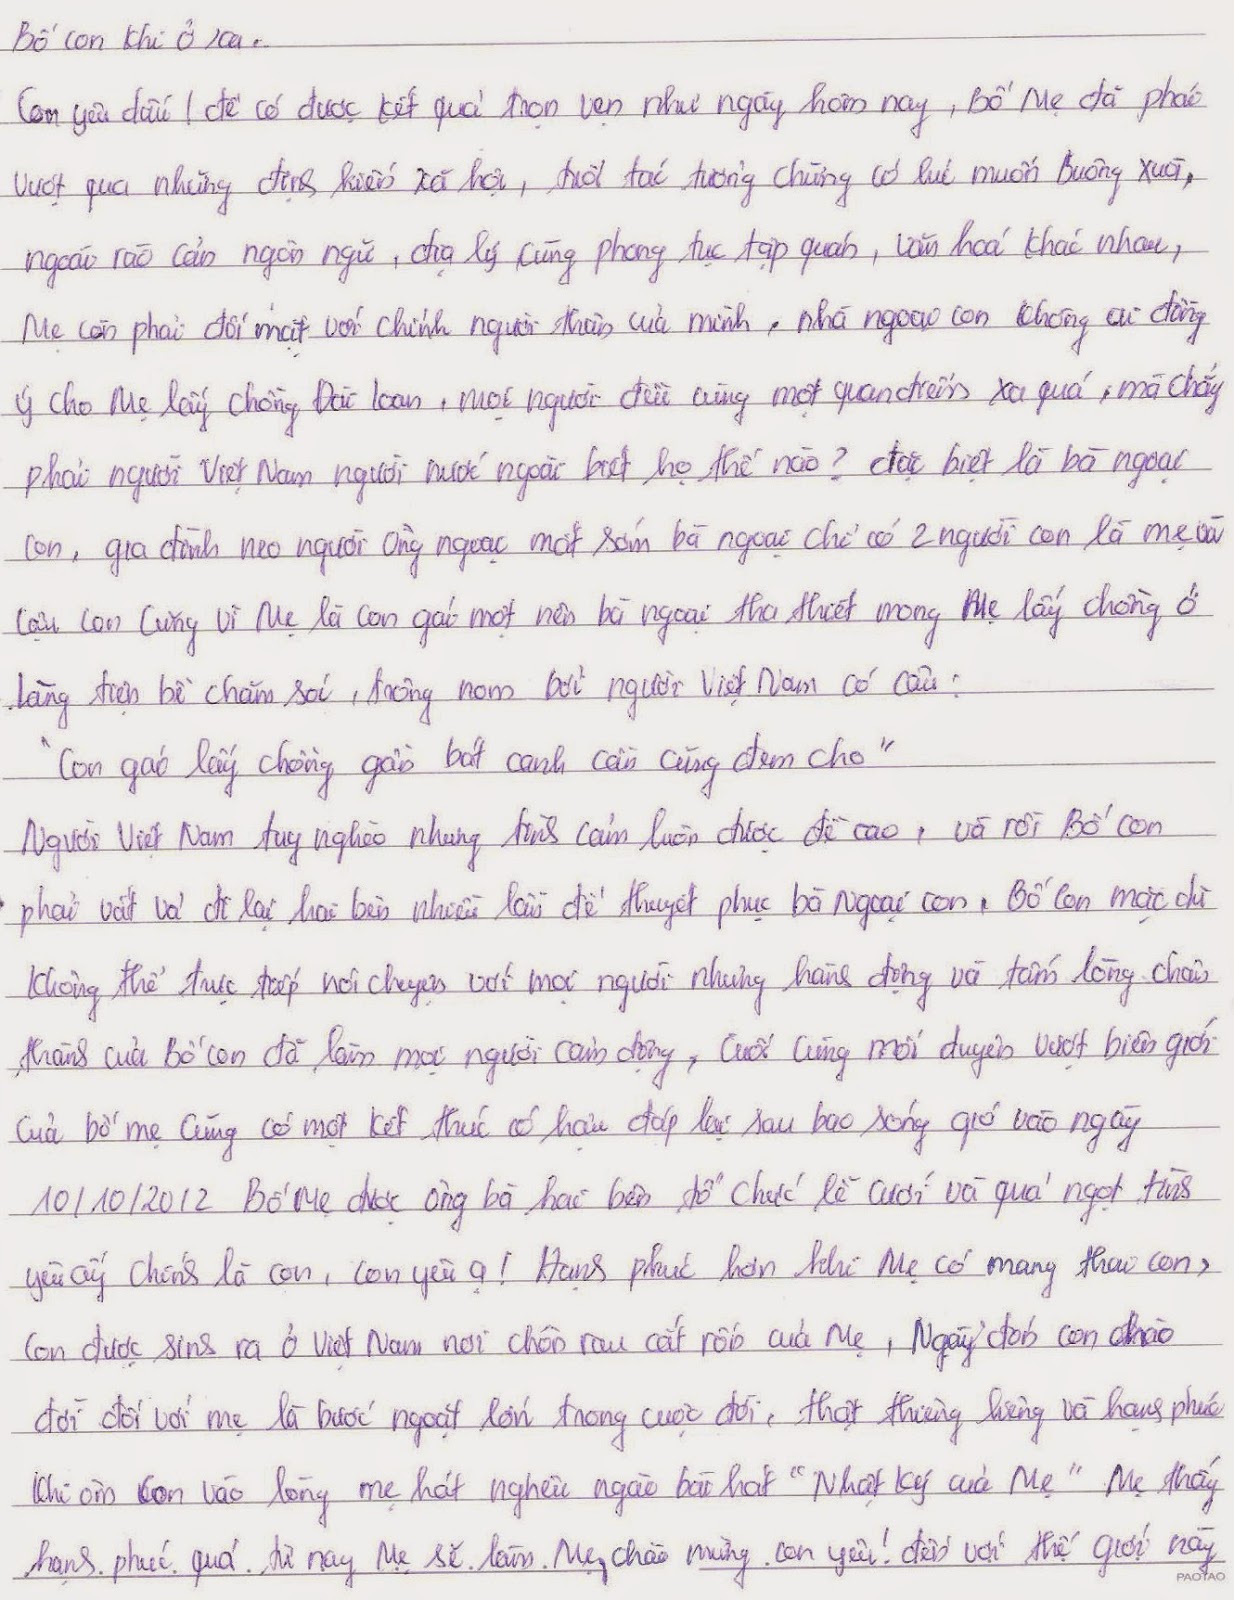 Bố con khi ở xa.
Con yêu dấu! để có được kết quả trọn vẹn như ngày hôm nay, Bố Mẹ đã phải
vượt qua những định kiến xã hội, tuổi tác tưởng chừng có lúc muốn buông xuôi,
ngoài rào cản ngôn ngữ, địa lý cùng phong tục tập quán, văn hoá khác nhau,
Mẹ còn phải đối mặt với chính người thân của mình, nhà ngoại con không ai đồng
ý cho Mẹ lấy chồng Đài Loan, mọi người đều cùng một quan điểm xa quá, mà chẳng
phải người Việt Nam người nước ngoài biết họ thế nào? đặc biệt là bà ngoại
con, gia đình neo người ông ngoại mất sớm bà ngoại chỉ có 2 người con là mẹ và
cậu con cũng vì Mẹ là con gái một nên bà ngoại tha thiết mong Mẹ lấy chồng ở
làng tiện bề chăm sóc, trông nom bởi người Việt Nam có câu:
"Con gái lấy chồng gần bát canh cần cũng đem cho"
Người Việt Nam tuy nghèo nhưng tình cảm luôn được đề cao, và rồi Bố con
phải vất vả đi lại hai bên nhiều lần để thuyết phục bà Ngoại con, Bố Con mặc dù
không thể trực tiếp nói chuyện với mọi người nhưng hành động và tấm lòng chân
thành của Bố con đã làm mọi người cảm động, Cuối cùng mối duyên vượt biên giới
của bố mẹ cũng có một kết thúc có hậu đáp lại sau bao sóng gió vào ngày
10/10/2012 Bố Mẹ được ông bà hai bên tổ chức lễ cưới và quả ngọt tình
yêu ấy chính là con, con yêu ạ! Hạnh phúc hơn khi Mẹ có mang thai con,
Con được sinh ra ở Việt Nam nơi chôn rau cắt rốn của Mẹ, Ngày đón con chào
đời đối với mẹ là bước ngoặt lớn trong cuộc đời, thật thiêng liêng và hạnh phúc
khi ôm con vào lòng mẹ hát nghêu ngao bài hát "Nhật ký của Mẹ" Mẹ thấy
hạnh phúc quá từ nay Mẹ sẽ làm Mẹ, chào mừng con yêu! đến với thế giới này
PAOTAO